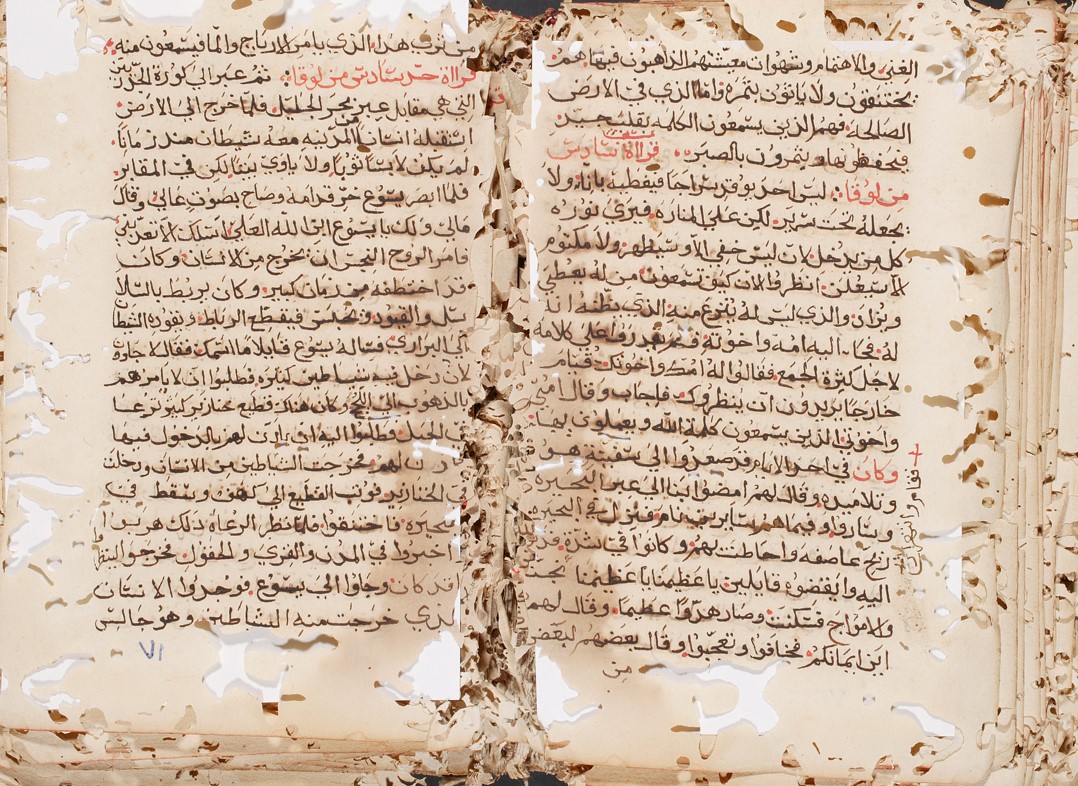 الغنى والاهتمام وشهوات معيشتهم الذاهبون فيها هم
يختنقون ولا ياتون بثمره واما الذي في الارض
الصالحه فهم الذين يسمعون الكلمه بقلب جيد
فيحفظوها ويثمرون بالصبر قراة سادس
من لوقا ليس احد يوقد سراجا فيغطيه بانا ولا
يجعله تحت سرير لكن على المناره فيرى نوره
كل من يدخل لان ليس خفي الا وسيظهر ولا مكتوم
الا سيعلن انظروا الان كيف تسمعون من له يعطى
ويزاد والذي ليس له ينزع منه الذي يظنه انه
له فجا اليه امه واخوته فلم يقدروا على كلامه
لاجل كثرة الجمع فقالوا له امك واخوتك قيام
خارجا يريدون ان ينظروك فاجاب وقال امي
واخوتي الذين يسمعون كلمة الله ويعملون بها
وكان في احد الايام قد صعدوا الى سفينه هو
وتلاميذه وقال لهم امضوا بنا الى عبر البحيره
وساروا وفيما هم سايرين نام فنزل في البحيره
ريح عاصفه واحاطت بهم وكانوا في شدة
اليه وايقضوه قايلين يا عظيمنا يا عظيمنا
والامواج فسكنت وصار هدوا عظيما وقال لهم
اين ايمانكم فخافوا وتعجبوا وقال بعضهم لبعض
من
من ترى هدا الذي يامر الارياح والما فيسمعون منه
قراة حد سادس من لوقا ثم عبر الى كورة
التي هي مقابل عبر بحر الجليل فلما خرج الى الارض
استقبله انسان من المدينه معه شيطان منذ زمانا
لم يكن لابسا ثوبا ولا ياوي بيتا لكن في المقابر
فلما ابصر يسوع خر قدامه وصاح بصوت عالي وقال
مالي ولك يا يسوع ابن الله العلي اسلك الا تعذبني
فامر الروح النجس ان يخرج من الانسان وكان
قد اختطفه من زمان كبير وكان يربط بالسلا
سل والقيود ويحبس فيقطع الرباط ويقوده الشيطا
الى البراري فساله يسوع قايلا ما اسمك فقال لاجاون
لان دخل فيه شياطين كثيره فطلبوا ان لا يامرهم
بالذهوب الى اللج وكان هناك قطيع خنازير كبير ترعا
في الجبل فطلبوا اليه ان ياذن لهم بالدخول فيها
لهم فخرجت الشياطين من الانسان ودخلت
في الخنازير فوثب القطيع الى كهف وسقط في
بحيره فاختنقوا فلما نظر الرعاه ذلك هربوا
اخبروا في المدن والقرى والحقول فخرجوا
قد كان وجاوا الى يسوع فوجدوا الانسان
لذي خرجت منه الشياطين وهو جالس